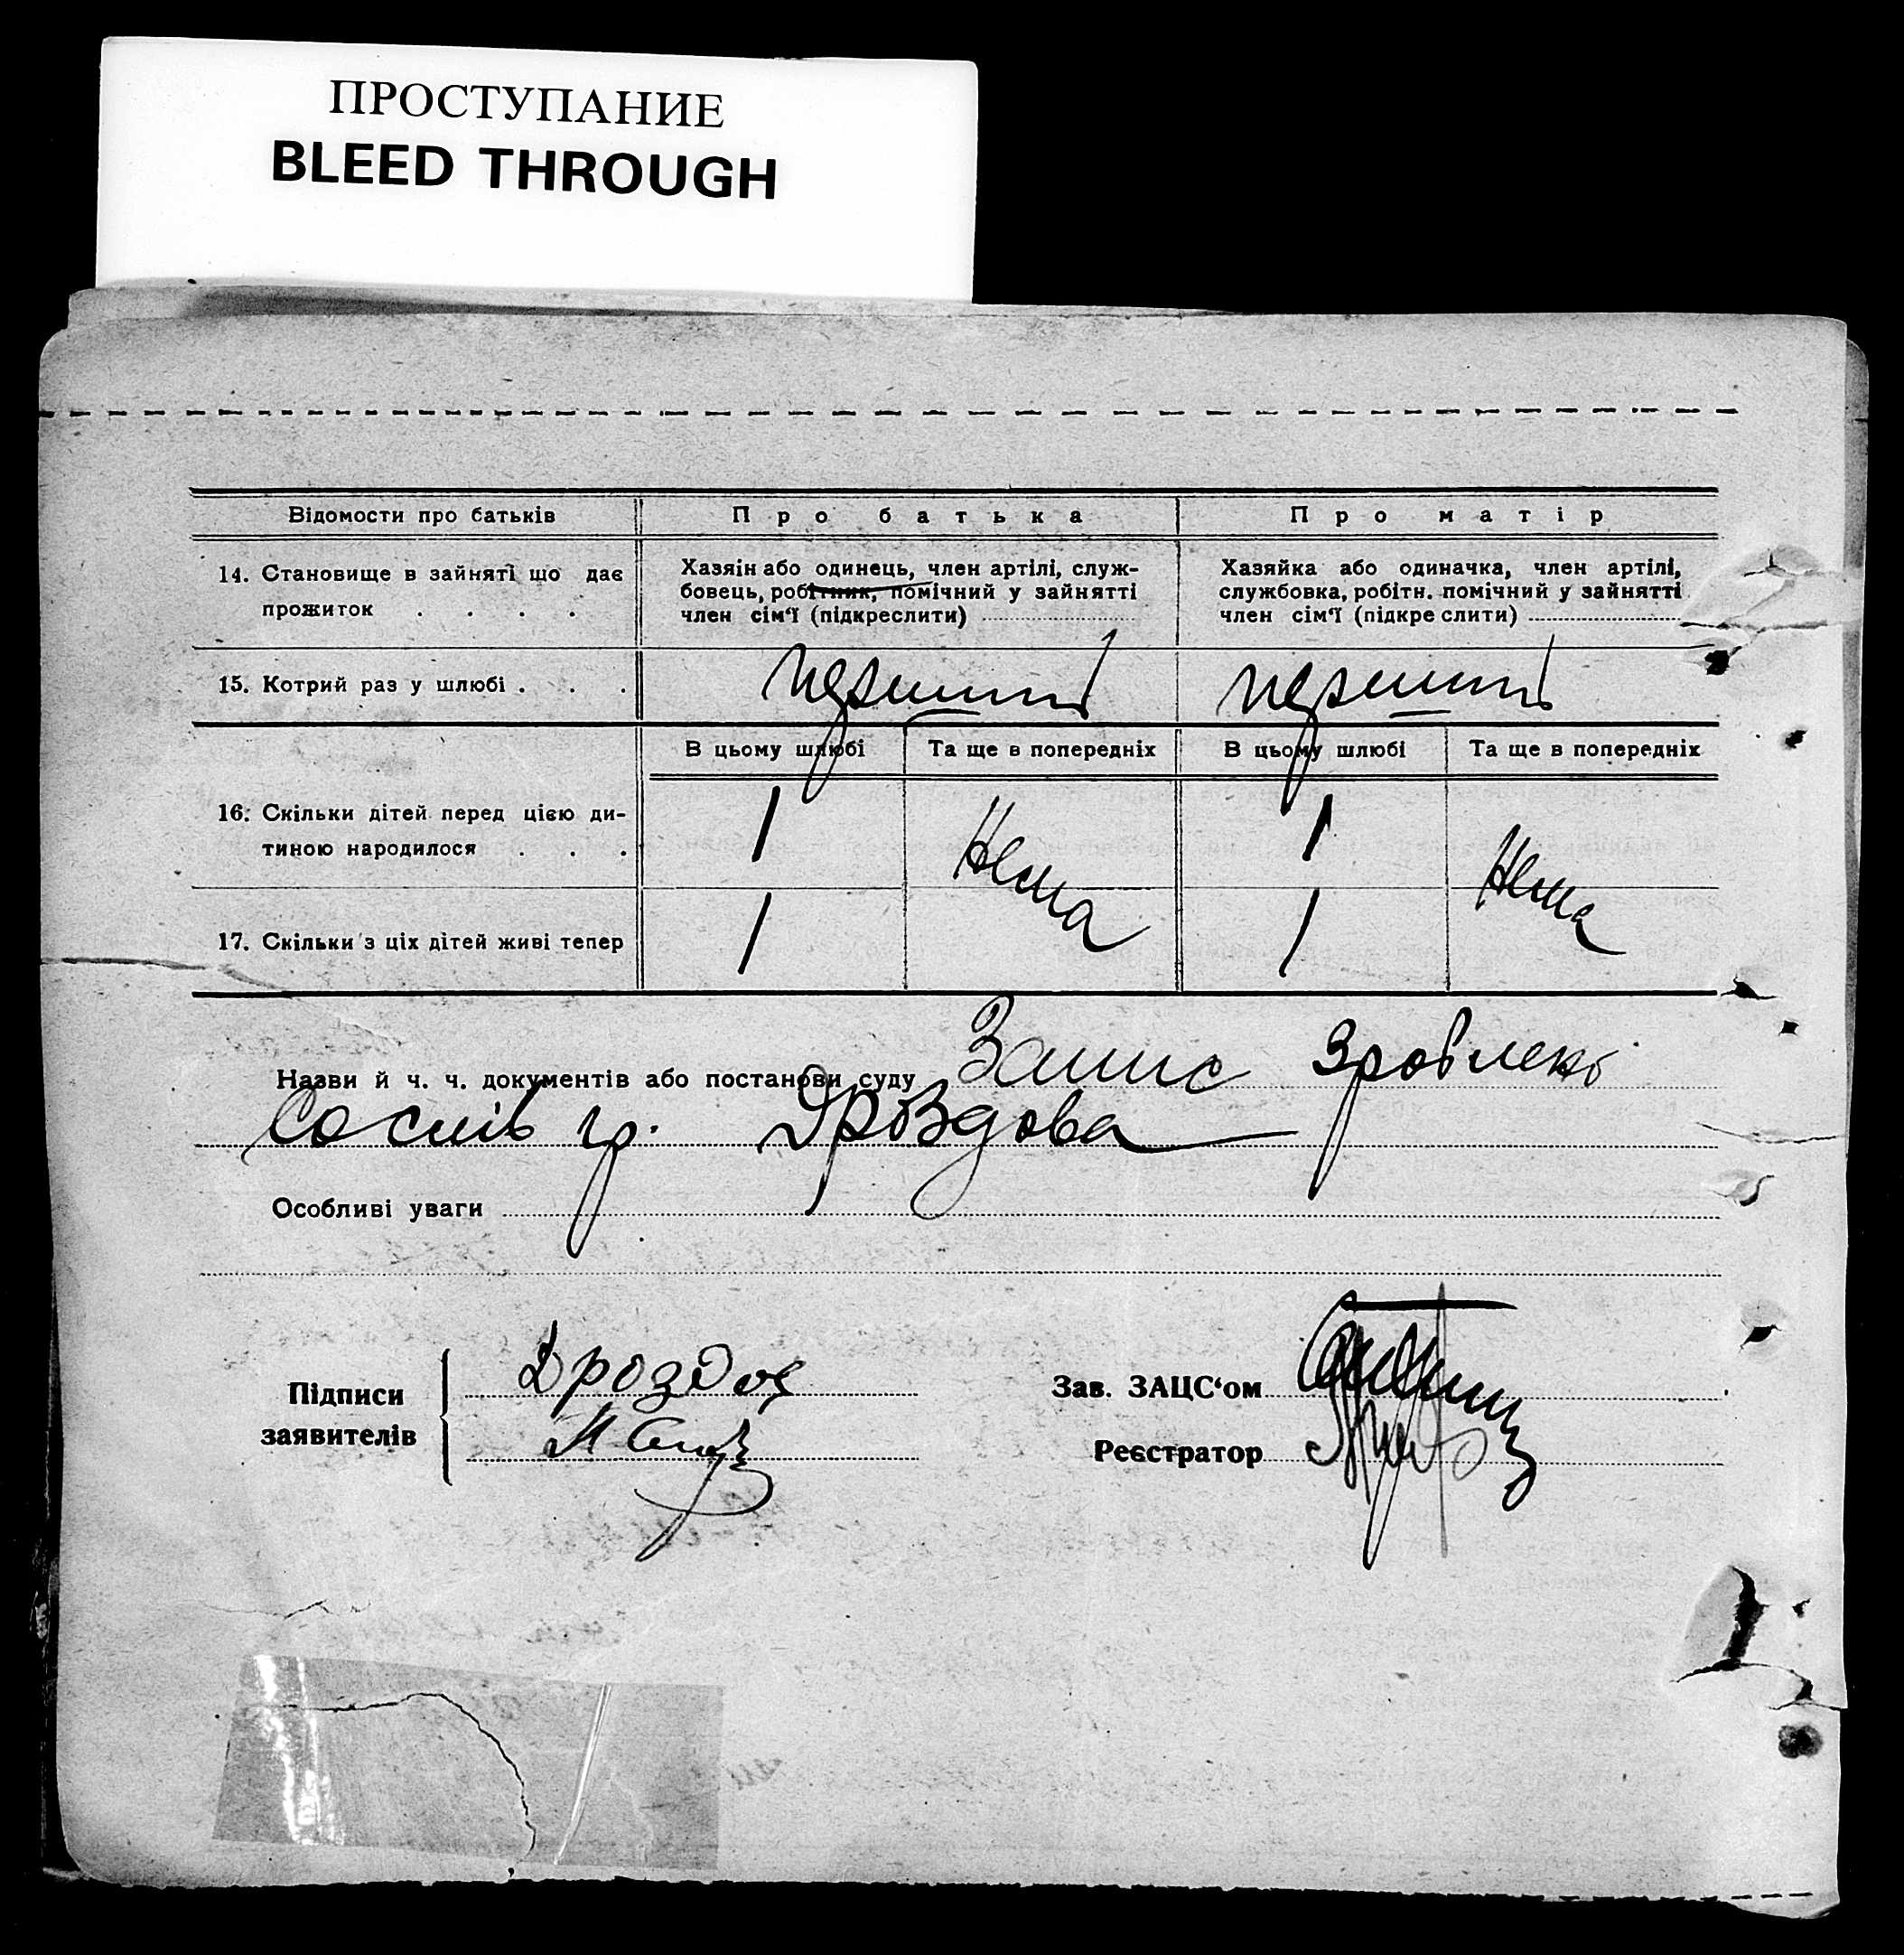 ПРОСТУПАНИЕ
BLEED THROUGH
Відомости про батьків
Про батька
Про матір
14. Становище в зайняті що дає
прожиток . . . .
Хазяін або одинець, член артілі, служ-
бовець, робітник, помічний у зайнятті
член сім‘ї (підкреслити)
Хазяйка або одиначка, член артілі,
службовка, робітн. помічний у зайнятті
член сім‘ї (підкреслити)
15. Котрий раз у шлюбі . . .
перший
перший
В цьому шлюбі
Та ще в попередніх
В цьому шлюбі
Та ще в попередніх
16. Скільки дітей перед цією ди-
тиною народилося . . .
1
Нема
1
Нема
17. Скільки з ціх дітей живі тепер
1
1
Назви й ч. ч. документів або постанови суду Запис зроблено
со слів гр. Дроздова
Особливі уваги
Підписи
заявителів
Дроздов
Зав. ЗАЦС‘ом
Реєстратор